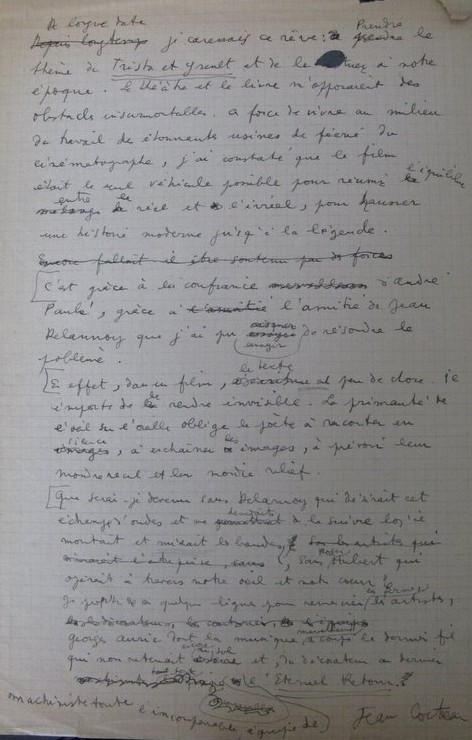 A longue date
Depuis longtemps je caressais ce rêve : Prendre le
thème de Tristan et Yseult et de le situer à notre
époque. Le théâtre et le livre m'opposaient des
obstacles insurmontables. A force de vivre au milieu
du travail de étonnants usines de féerie du
cinématographe, j'ai constaté que le film
était le seul véhicule possible pour réussir l'équilibre
entre le réel et l'irréel, pour hausser
une histoire moderne jusqu'à la légende.
Encore fallait-il être soutenu par des forces
C'est grâce à la confiance d'André
Paulvé, grâce à l'amitié de Jean
Delannoy que j'ai pu essayer de résoudre le
problème.
En effet, dans un film, le texte est peu de chose. Il
importe de le rendre invisible. La primauté de
l'œil sur l'oreille oblige le poète à raconter en
silence, à enchaîner les images, à prévoir leur
moindre recul et leur moindre relief.
Que serai-je devenu sans Delannoy qui devinait cet
échange d'ondes et me permettait de le suivre lorsqu'il
montait et mixait les bandes, les artistes qui
sans Roger Hubert qui
opérait à travers notre œil et notre cœur !
Je profite de quelques lignes pour remercier les artistes,
les décorateurs, les costumes,
Georges Auric dont la musique a coupé le dernier fil
qui nous retenait au sol et, du décorateur au dernier
machiniste toute l'incomparable équipe de l'Eternel Retour.
Jean Cocteau